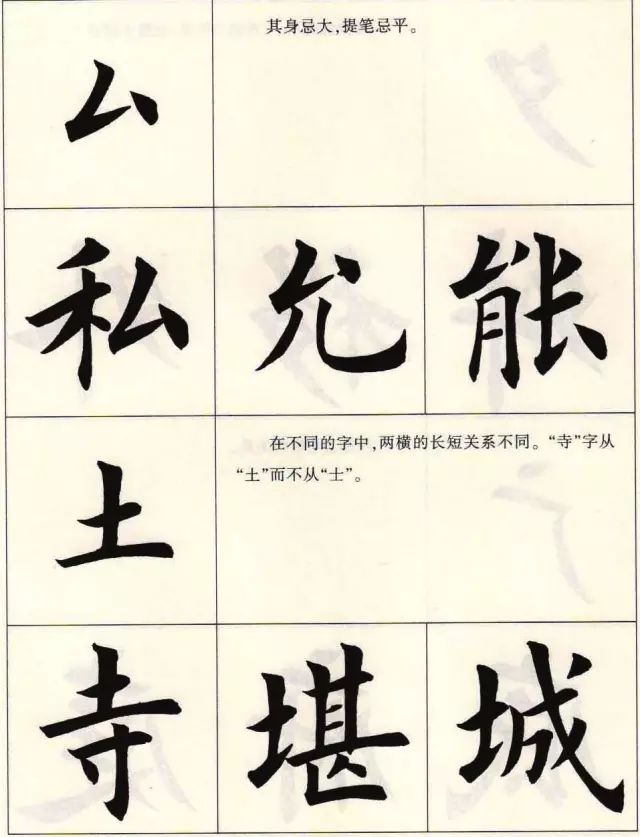 其身忌大，提笔忌平。
厶
私 允 能
在不同的字中，两横的长短关系不同。“寺”字从
“土”而不从“士”。
土
寺 堪 城